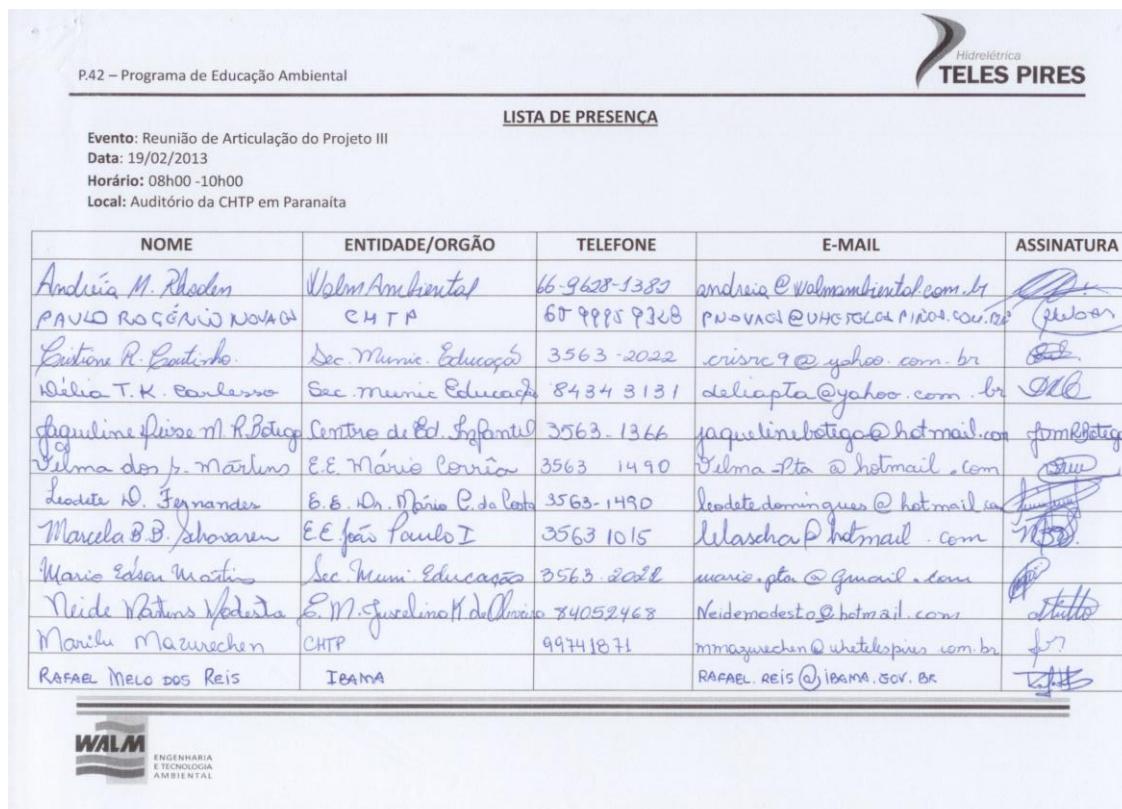 Hidrelétrica
TELES PIRES
P.42 – Programa de Educação Ambiental
LISTA DE PRESENÇA
Evento: Reunião de Articulação do Projeto III
Data: 19/02/2013
Horário: 08h00 -10h00
Local: Auditório da CHTP em Paranaíta
NOME ENTIDADE/ORGÃO TELEFONE E-MAIL ASSINATURA
Andréia M. Rhoden Walm Ambiental 66-9628-1382 andreia@walmambiental.com.br
PAULO ROGÉRIO NOVAES CHTP
Cristiane R. Coutinho. Sec. Munic. Educaçã 3563-2022 crisrc9@yahoo.com.br
Délia T. K. Carlesso Sec. Munic Educação 8434 3131 deliapta@yahoo.com.br
Jaqueline M. R. Botega Centro de Ed. Infantil 3563-1366 jaquelinebotega@hotmail.com
Vilma dos S. Martins E.E. Mário Corrêa 3563 1490 Vilma-Pta@hotmail.com
Leodete D. Fernandes E.E. Dr. Mário C. da Costa 3563-1490 leodetedomingues@hotmail.com
Marcela B.B. E.E. João Paulo I 3563 1015 lelascha@hotmail.com
Mario Edson Martins Sec. Muni. Educação 3563-2022 mario.pta@gmail.com
Neide Martins Modesto E.M. Juscelino K. de Oliveira 84052468 Neidemodesto@hotmail.com
Marilu Mazurechen CHTP 99741871 mmazurechen@uhetelespires.com.br
RAFAEL MELO DOS REIS IBAMA RAFAEL.REIS@IBAMA.GOV.BR
WALM
ENGENHARIA
E TECNOLOGIA
AMBIENTAL